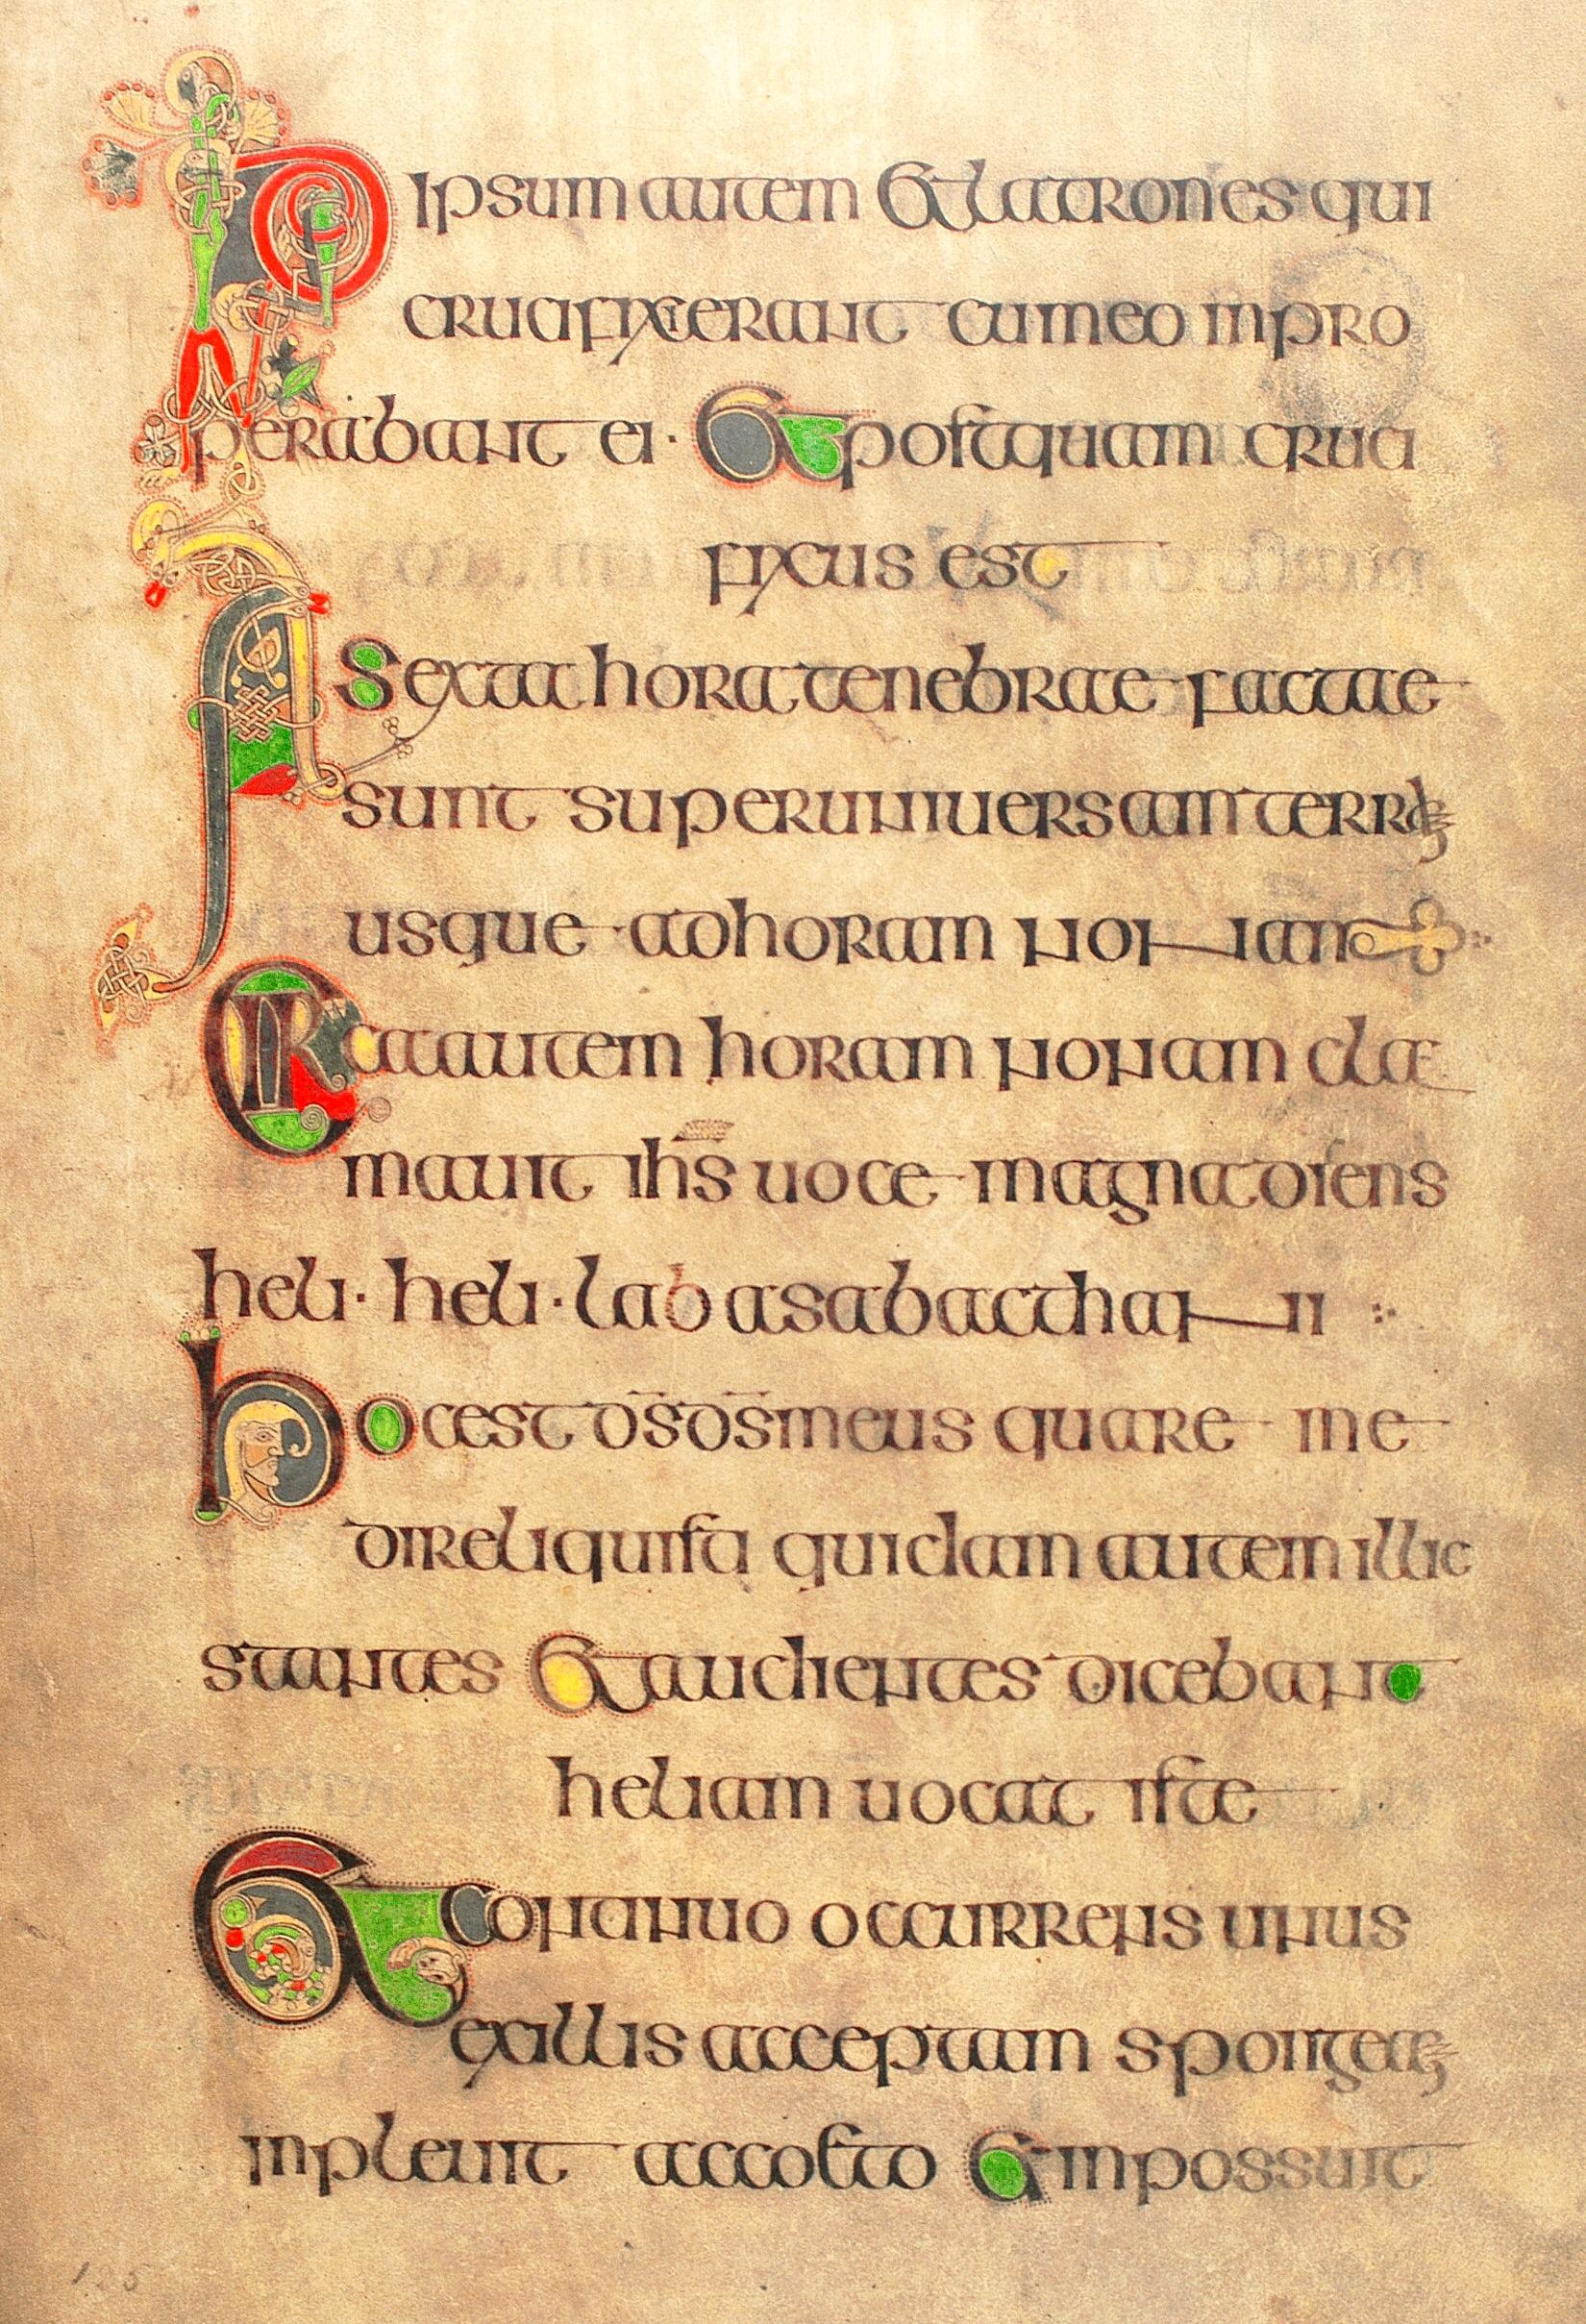 IDipsum autem et latrones qui
crucifixerant cum eo inpro
perabant ei · Et postquam cruci
fixus est
A Sexta hora tenebrae factae
sunt super uniuersam terram
usque ad horam nonam
Circa autem horam nonam cla
mauit ihs̄ uoce magna dicens
heli · heli · labasabacthani
hoc est d̄s d̄s meus quare me
direliquisti quidam autem illic
stantes Et audientes dicebant
heliam uocat iste
Et continuo occurrens unus
ex illis acceptam spongeam
inpleuit accoeto Et inpossuit